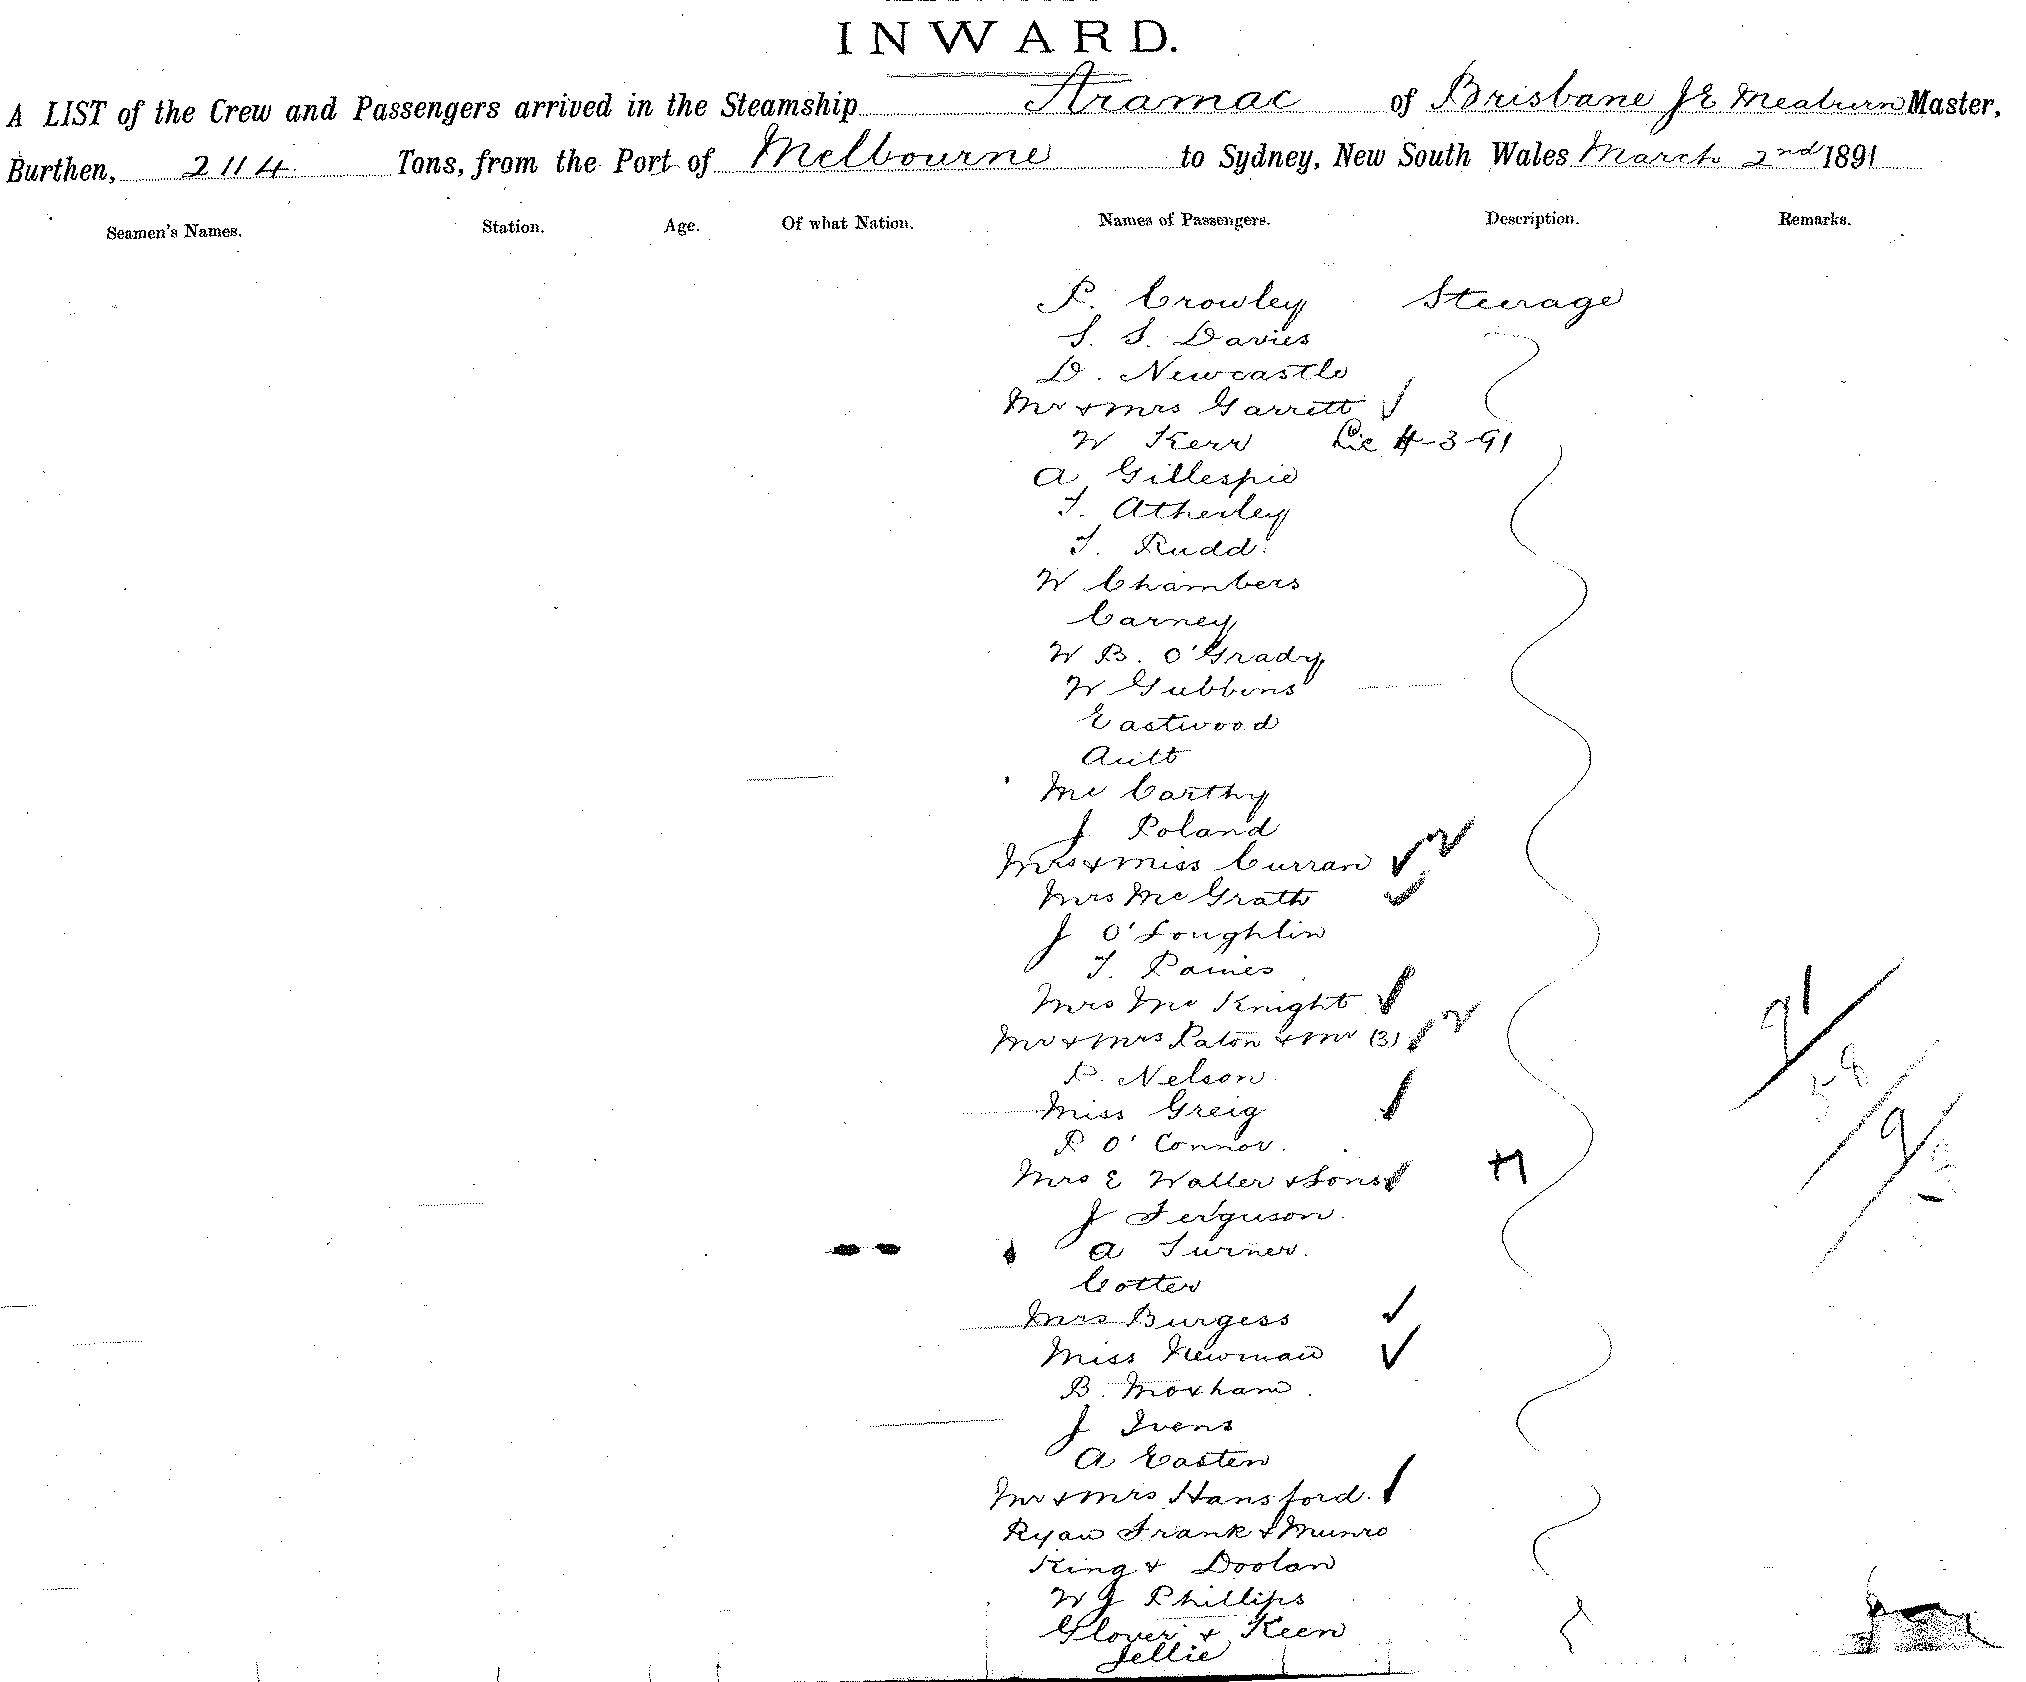 INWARD.
A LIST of the Crew and Passengers arrived in the Steamship Aramac of Brisbane JE Meaburn Master,
Burthen, 2114 Tons, from the Port of Melbourne to Sydney, New South Wales March 2nd 1891
Seamen's Names. Station. Age. Of what Nation. Names of Passengers. Description. Remarks.
P. Crowley Steerage
S. S. Davies
D. Newcastle
Mr & Mrs Garrett
W Kerr 4-3-91
A Gillespie
T. Atherley
T. Rudd.
W Chambers
Carney
W B. O'Grady
W Gubbins
Eastwood
Ault
Mc Carthy
J Poland
Mrs & Miss Curran
Mrs McGrath
J O'Loughlin
T. Raines
Mrs Mc Knight
Mr & Mrs Paton & Mr (3)
P. Nelson
Miss Greig
P O'Connor.
Mrs E Waller & Sons
J Ferguson.
A Turner.
Cotter
Mrs Burgess
Miss Newman
B. Moxham.
J Ivens
A Easten
Mr & Mrs Hansford.
Ryan Frank & Munro
King & Doolan
W J Phillips
Glover & Keen
Jellie
91
58